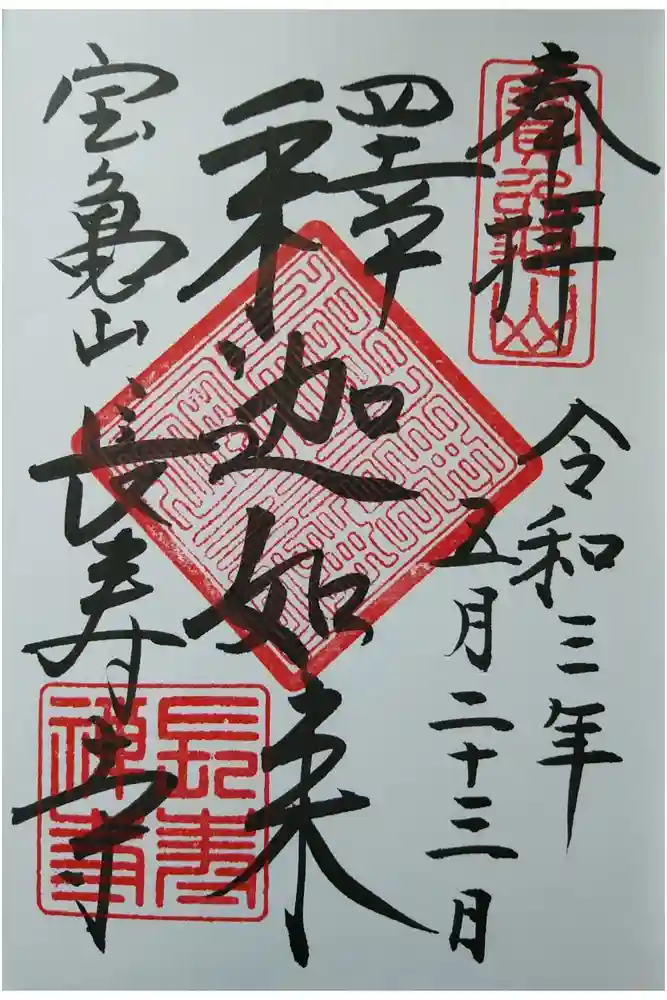 奉拝
寳龜山
令和三年
五月二十三日
釋迦如来
宝亀山
長寿寺
長壽
禅寺